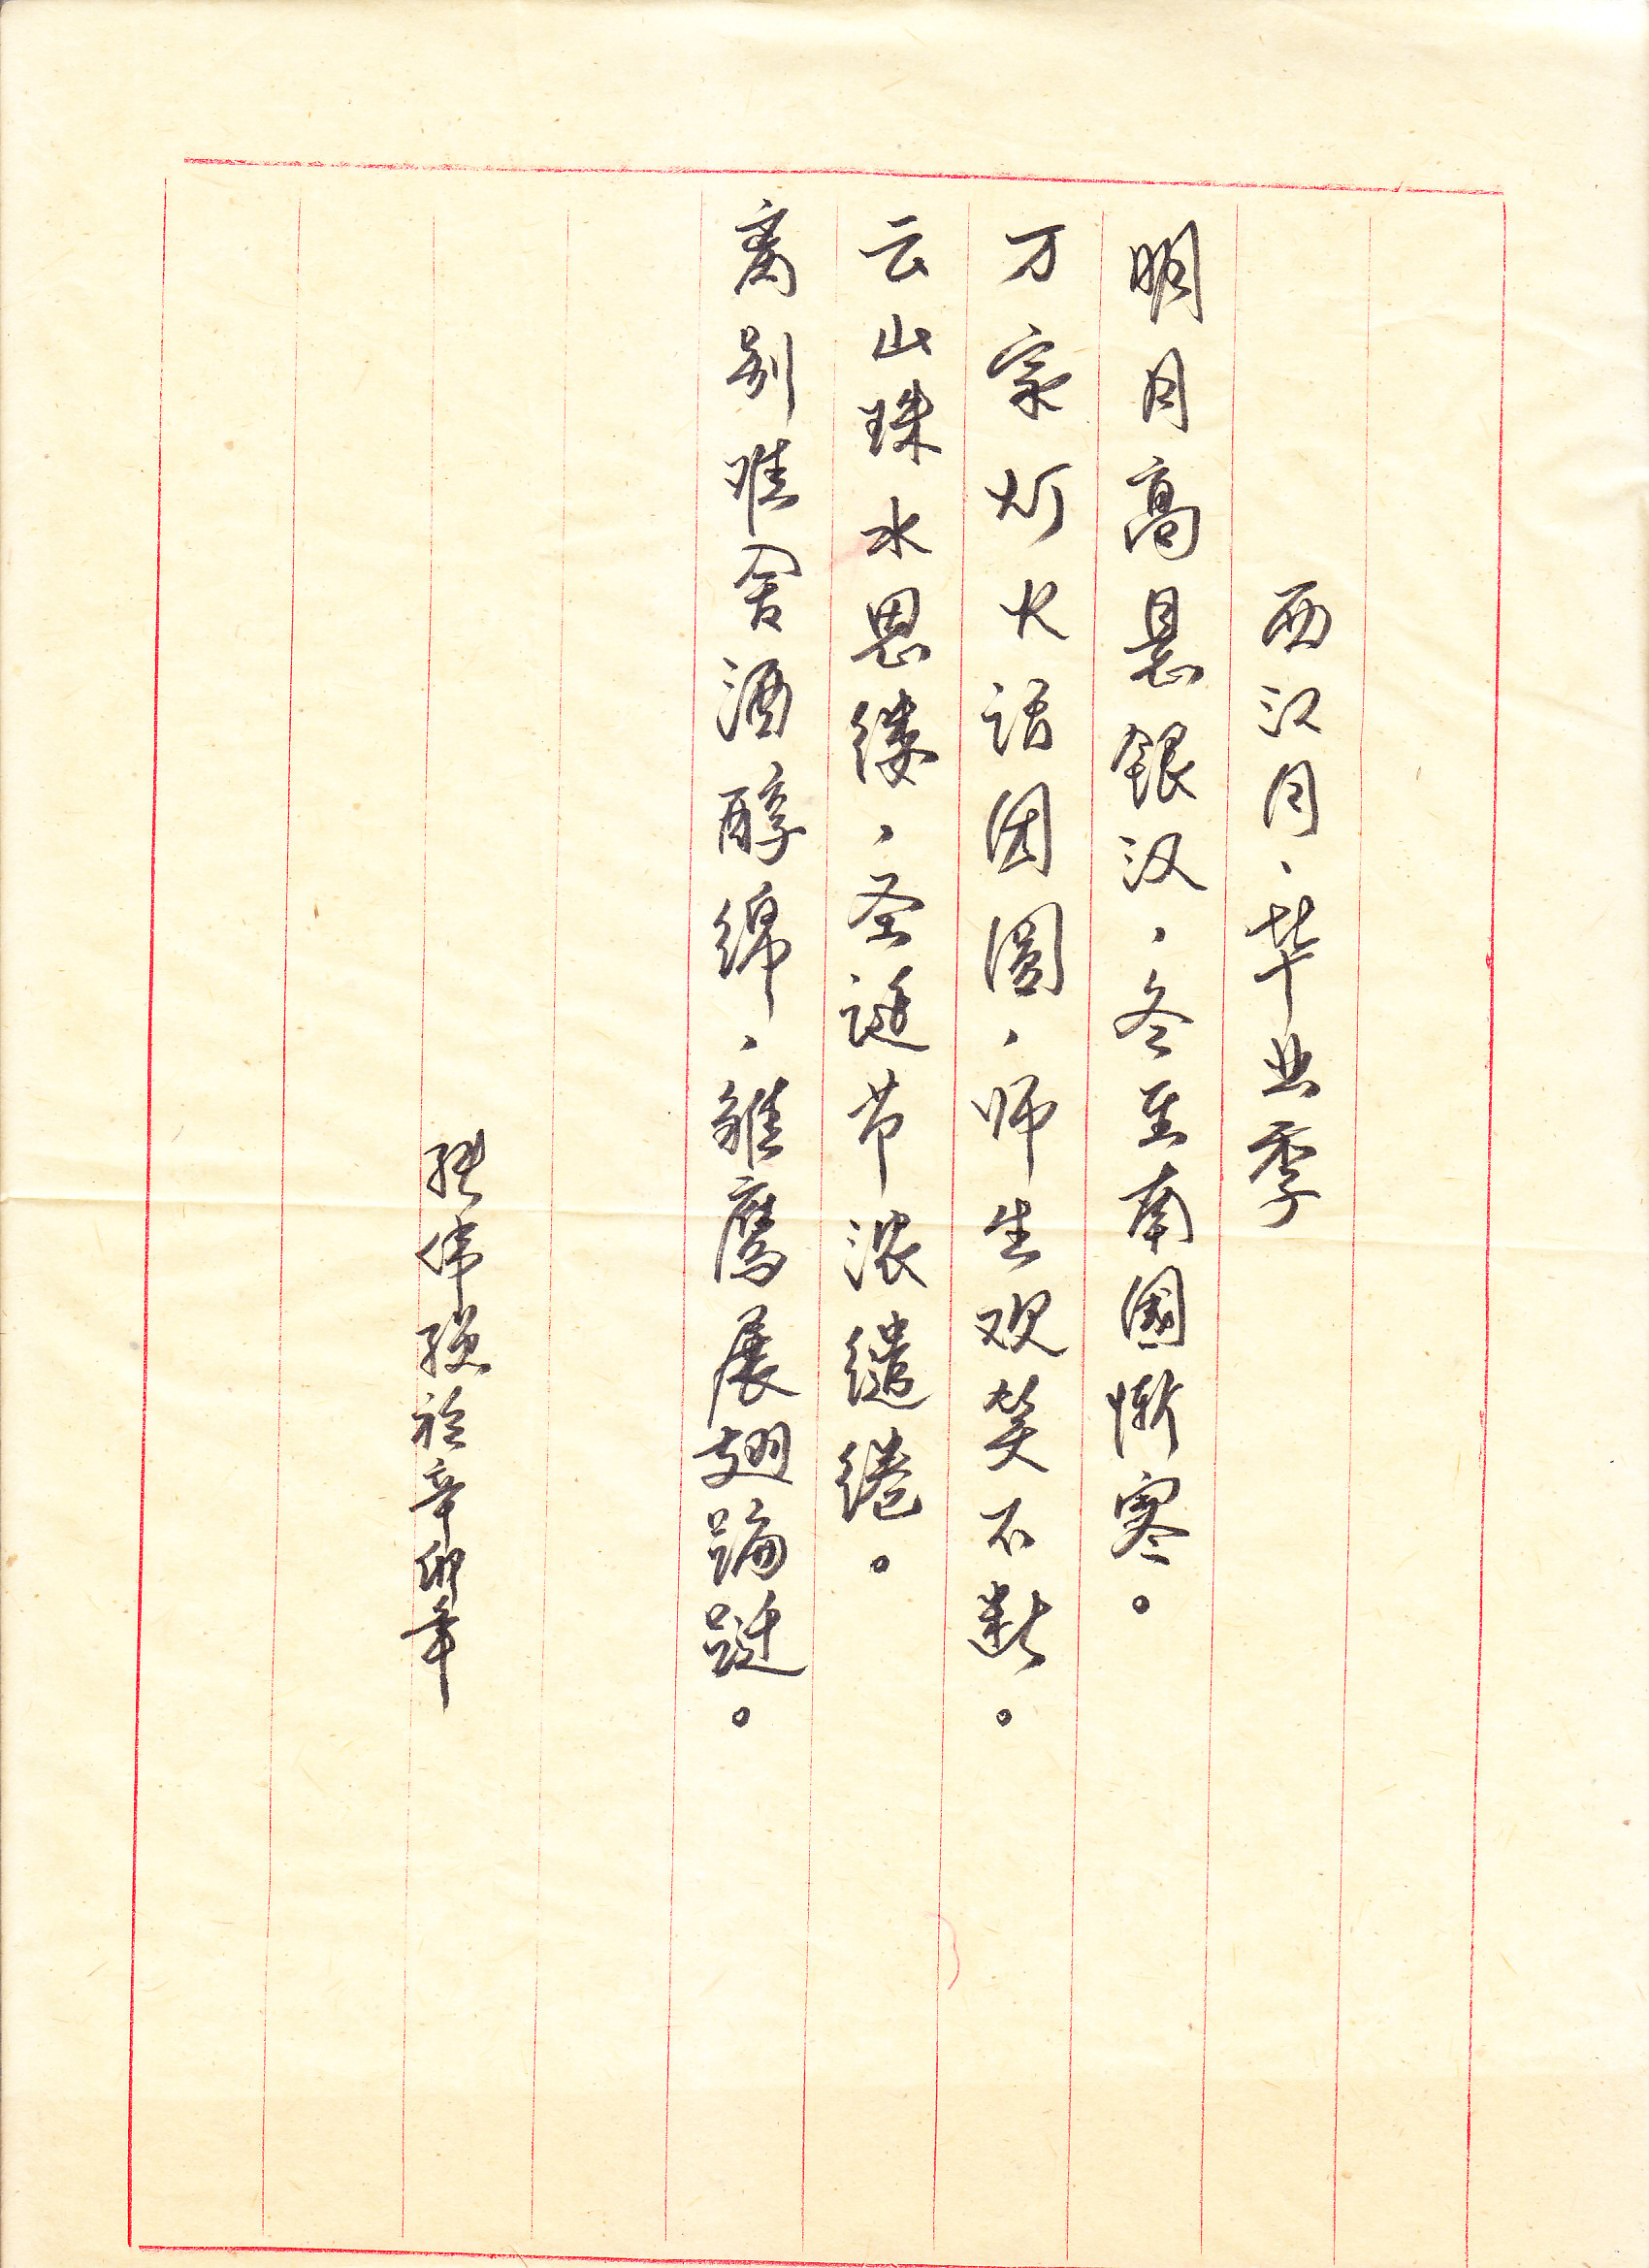 西江月、毕业季
明月高悬银汉，冬至南國渐寒。
万家灯火话团圆，师生欢笑不断。
云山珠水思缕，圣诞节浓缱绻。
离别难舍酒醇绵，雏鹰展翅蹁跹。
张伟强於辛卯年